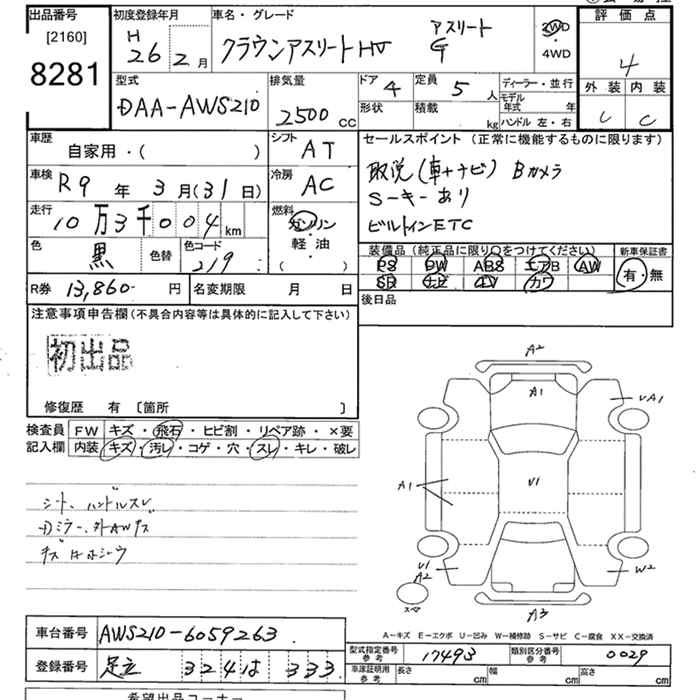 出品番号
[2160]
8281
初度登録年月
H 26 2月
車名・グレード
クラウンアスリートHV アスリートG
2WD
・
4WD
評価点
4
外装 内装
C C
型式
DAA-AWS210
排気量
2500 cc
ドア 4
形状
定員 5人
積載 kg
ディーラー・並行
モデル年式 年
ハンドル 左・右
車歴
自家用・( )
シフト AT
車検 R9年 3月(31日)
冷房 AC
走行 10万3千004km
燃料
ガソリン
・
軽・油
( )
色 黒
色替
色コード 219
R券 13,860- 円
名変期限 月 日
セールスポイント (正常に機能するものに限ります)
取説(車+ナビ) Bカメラ
Sーキーあり
ビルトインETC
装備品(純正品に限り○をつけてください)
PS PW ABS エアB AW
SR ナビ TV カワ
新車保証書
有・無
後日品
注意事項申告欄(不具合内容等は具体的に記入して下さい)
初出品
修復歴 有 〔箇所 〕
検査員記入欄
FW キズ・飛石・ヒビ割・リペア跡・×要
内装 キズ・汚レ・コゲ・穴・スレ・キレ・破レ
シート、ハンドルスレ
Dミラー、外AWキズ
A2
A1
UA1
A1
U1
U1
A2
W2
スペア
A3
A-キズ E-エクボ U-凹み W-補修跡 S-サビ C-腐食 XX-交換済
車台番号 AWS210-6059263
登録番号 足立 324 は 333
型式指定番号 参考 17493
類別区分番号 参考 0029
車庫証明用 参考 長さ cm 幅 cm 高さ cm
希望出品コーナー